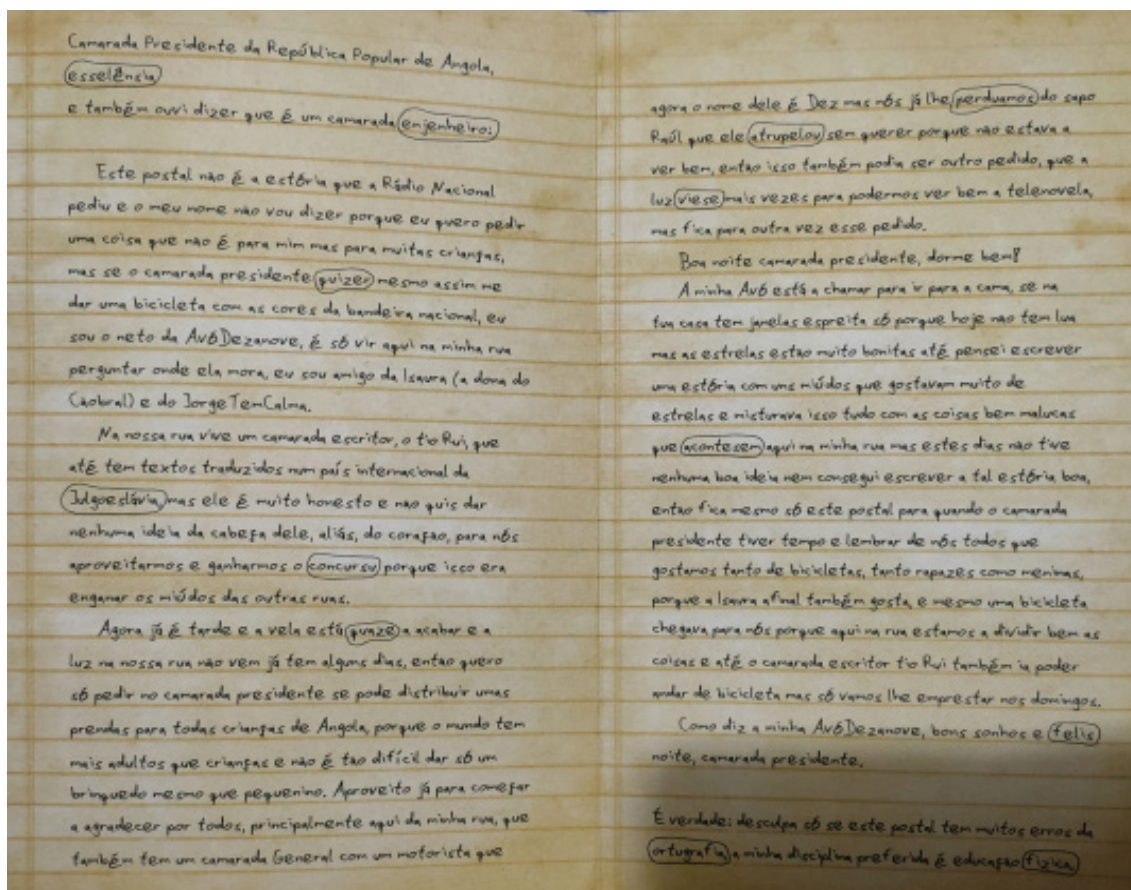 Camarada Presidente da República Popular de Angola,
esselênsia
e também ouvi dizer que é um camarada enjenheiro:
Este postal não é a estória que a Rádio Nacional
pediu e o meu nome não vou dizer porque eu quero pedir
uma coisa que não é para mim mas para muitas crianças,
mas se o camarada presidente quizer mesmo assim me
dar uma bicicleta com as cores da bandeira nacional, eu
sou o neto da AvóDezanove, é só vir aqui na minha rua
perguntar onde ela mora, eu sou amigo da Isaura (a dona do
Cãobral) e do JorgeTemCalma.
Na nossa rua vive um camarada escritor, o tio Rui, que
até tem textos traduzidos num país internacional da
Julgoeslávia, mas ele é muito honesto e não quis dar
nenhuma ideia da cabeça dele, aliás, do coração, para nós
aproveitarmos e ganharmos o concursu porque isso era
enganar os miúdos das outras ruas.
Agora já é tarde e a vela está quaze a acabar e a
luz na nossa rua não vem já tem alguns dias, então quero
só pedir no camarada presidente se pode distribuir umas
prendas para todas crianças de Angola, porque o mundo tem
mais adultos que crianças e não é tão difícil dar só um
brinquedo mesmo que pequenino. Aproveito já para começar
a agradecer por todos, principalmente aqui da minha rua, que
também tem um camarada General com um motorista que
agora o nome dele é Dez mas nós já lhe perduamos do sapo
Raúl que ele atrupelou sem querer porque não estava a
ver bem, então isso também podia ser outro pedido, que a
luz viese mais vezes para podermos ver bem a telenovela,
mas fica para outra vez esse pedido.
Boa noite camarada presidente, dorme bem?
A minha Avó está a chamar para ir para a cama, se na
tua casa tem janelas espreita só porque hoje não tem lua
mas as estrelas estão muito bonitas até pensei escrever
uma estória com uns miúdos que gostavam muito de
estrelas e misturava isso tudo com as coisas bem malucas
que acontesem aqui na minha rua mas estes dias não tive
nenhuma boa ideia nem consegui escrever a tal estória boa,
então fica mesmo só este postal para quando o camarada
presidente tiver tempo e lembrar de nós todos que
gostamos tanto de bicicletas, tanto rapazes como meninas,
porque a Isaura afinal também gosta, e mesmo uma bicicleta
chegava para nós porque aqui na rua estamos a dividir bem as
coisas e até o camarada escritor tio Rui também ia poder
andar de bicicleta mas só vamos lhe emprestar nos domingos.
Como diz a minha AvóDezanove, bons sonhos e felis
noite, camarada presidente.
É verdade: desculpa só se este postal tem muitos erros da
ortugrafia, a minha disciplina preferida é educação fizica